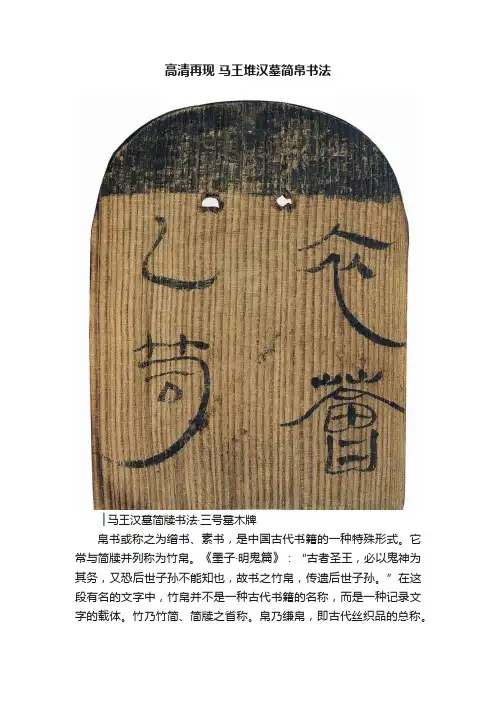 高清再现 马王堆汉墓简帛书法
衣薈
乙笥
│马王汉墓简牍书法·三号墓木牌
帛书或称之为缯书、素书，是中国古代书籍的一种特殊形式。它
常与简牍并列称为竹帛。《墨子·明鬼篇》：“古者圣王，必以鬼神为
其务，又恐后世子孙不能知也，故书之竹帛，传遗后世子孙。”在这
段有名的文字中，竹帛并不是一种古代书籍的名称，而是一种记录文
字的载体。竹乃竹简、简牍之省称。帛乃缣帛，即古代丝织品的总称。